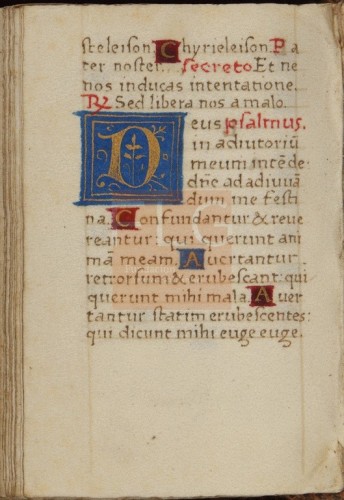 steleison. Chyrieleison. Pa
ter noster. secreto Et ne
nos inducas intentatione.
R Sed libera nos a malo.
Deus psalmus.
in adiutoriū
meum intēde:
dn̄e ad adiuuā
dum me festi
na. Confundantur & reue
reantur: qui querunt ani
mā meam. Auertantur
retrorsum & erubescant: qui
querunt mihi mala. Auer
tantur statim erubescentes:
qui dicunt mihi euge euge.